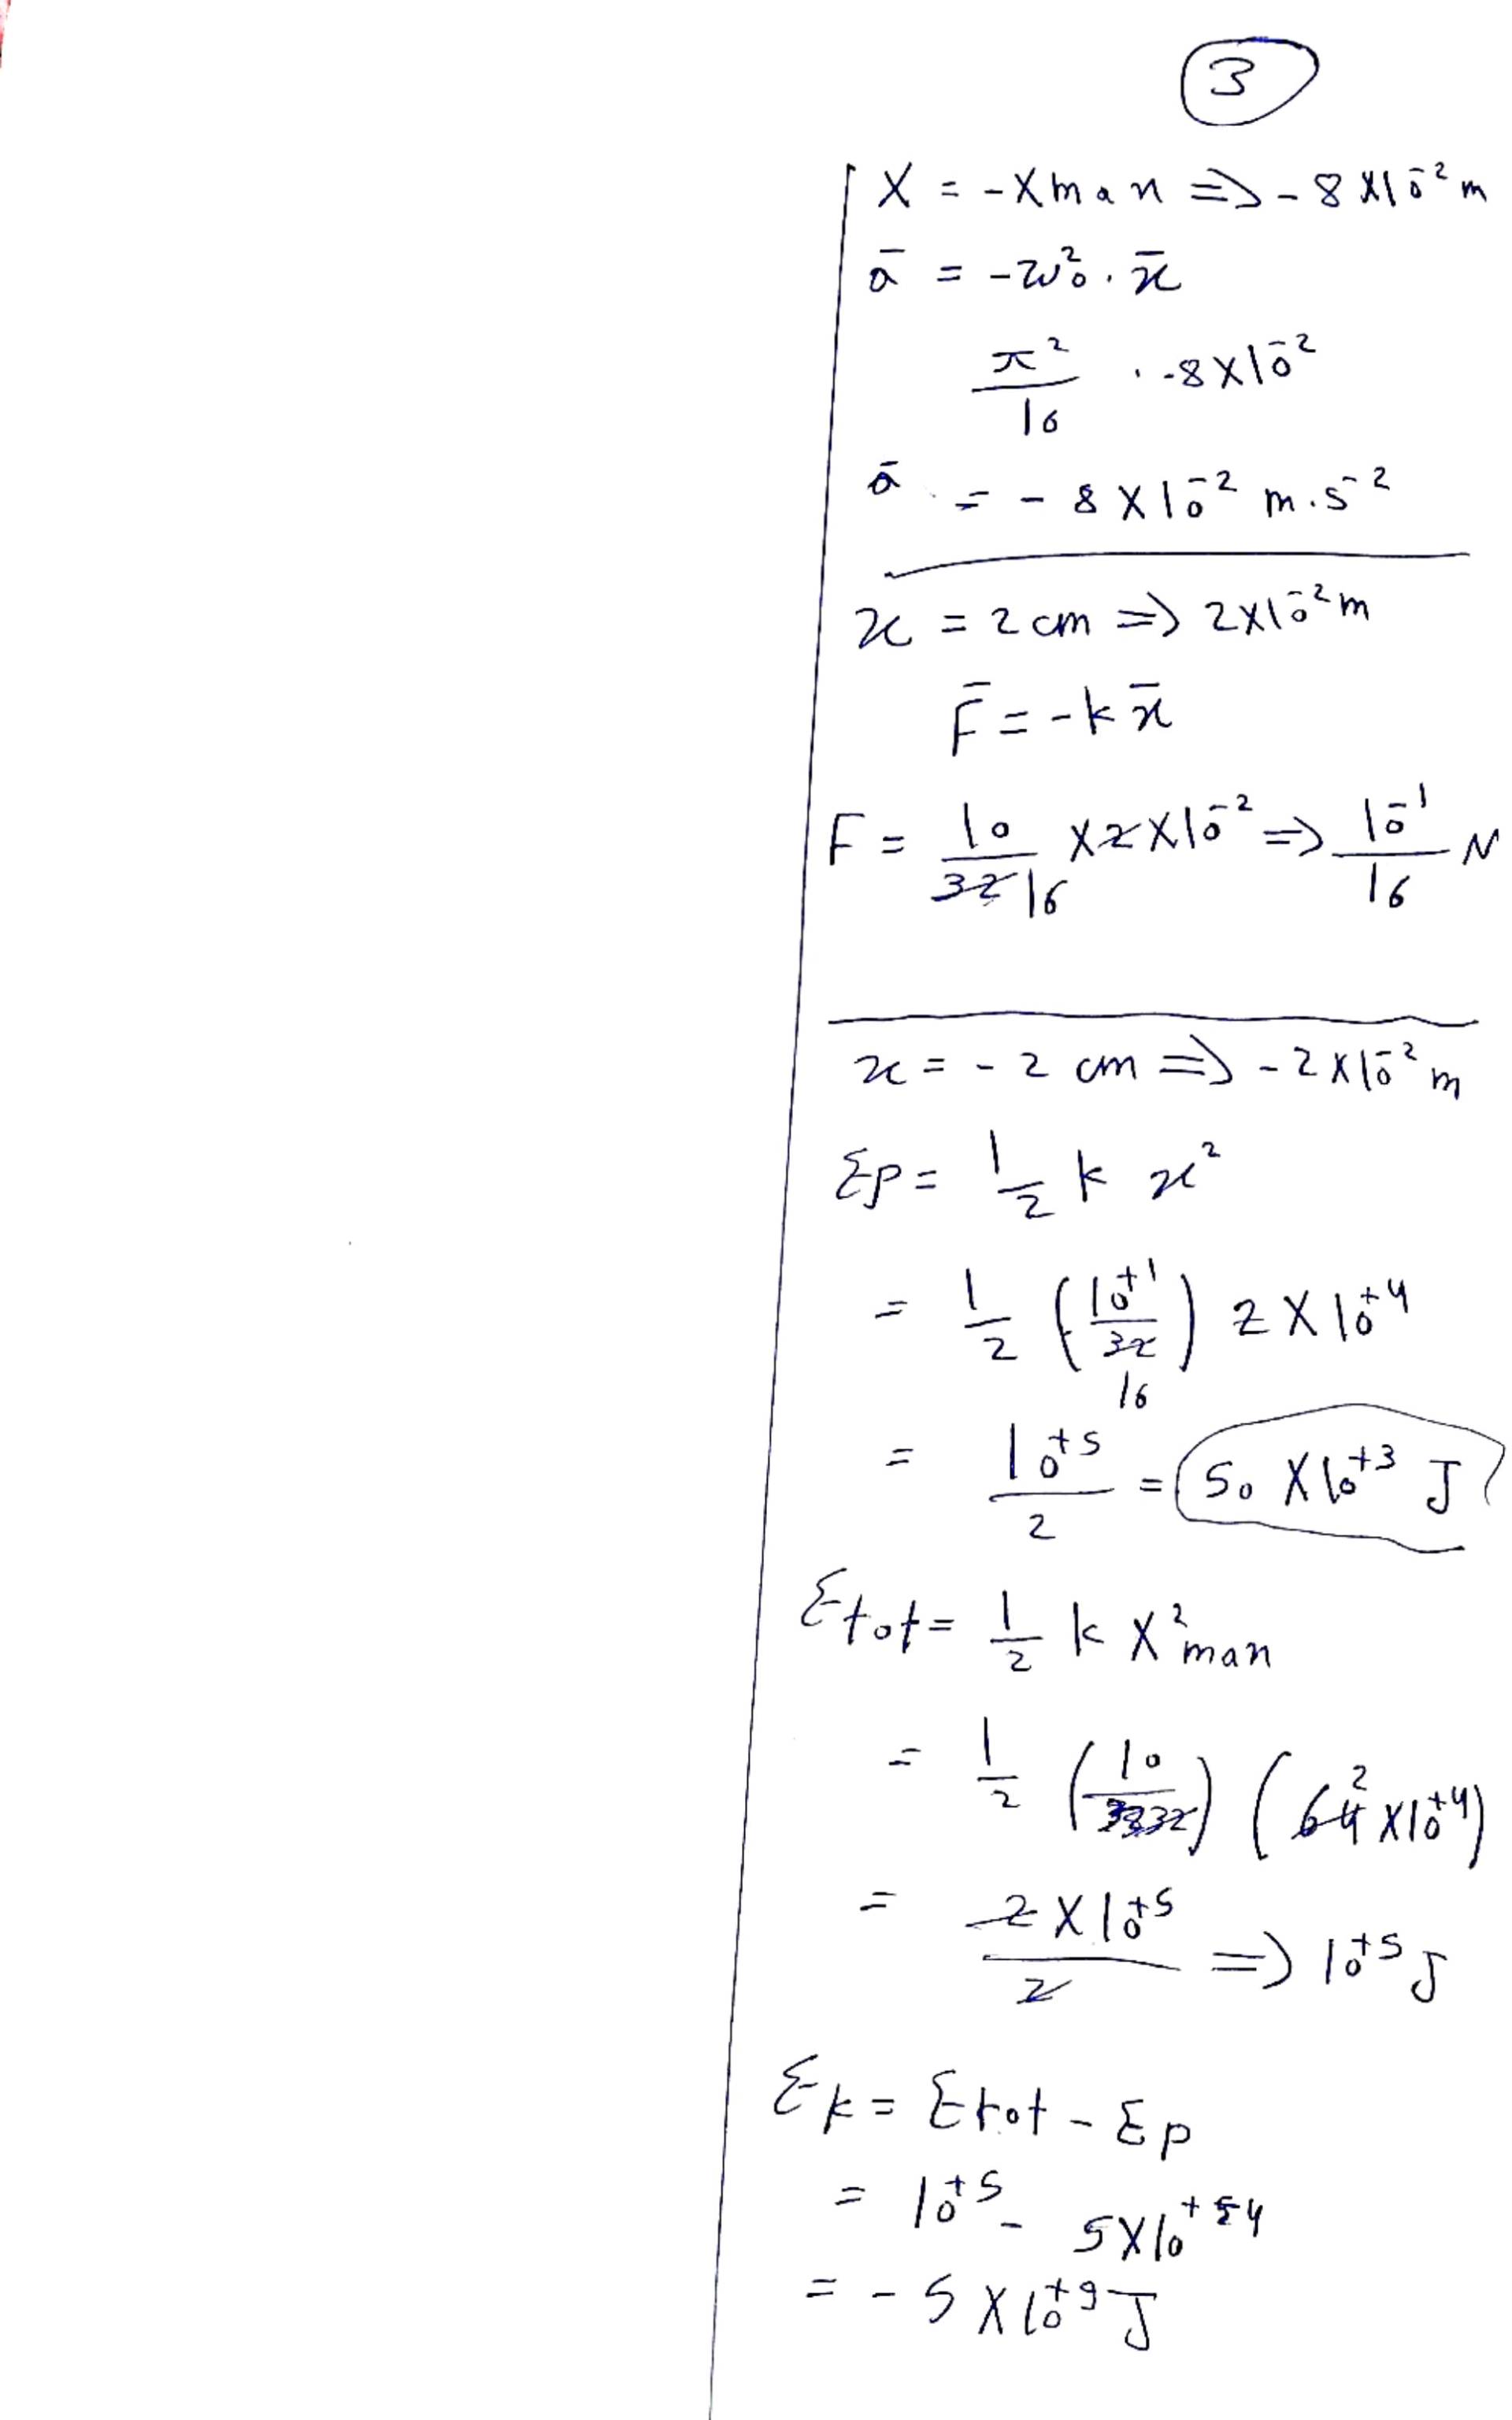 3
X = -Xman => -8 X10^-2 m
ā = -ω²₀ . x̄
π²/16 . -8X10^-2
ā = -8 X10^-2 m.s^-2
x = 2 cm => 2X10^-2 m
F̄ = -k x̄
F = 10/32 16 X2X10^-2 => 10^-1/16 N
x = -2 cm => -2X10^-2 m
Ep = 1/2 k x²
= 1/2 (10^+1/32) 2 X10^+4
16
= 10^+5/2 = 50 X10^+3 J
Etot = 1/2 k X²man
= 1/2 (10/32) (64² X10^+4)
= 2X10^+5/2 => 10^+5 J
Ek = Etot - Ep
= 10^+5 - 5X10^+4
= -5 X10^+9 J